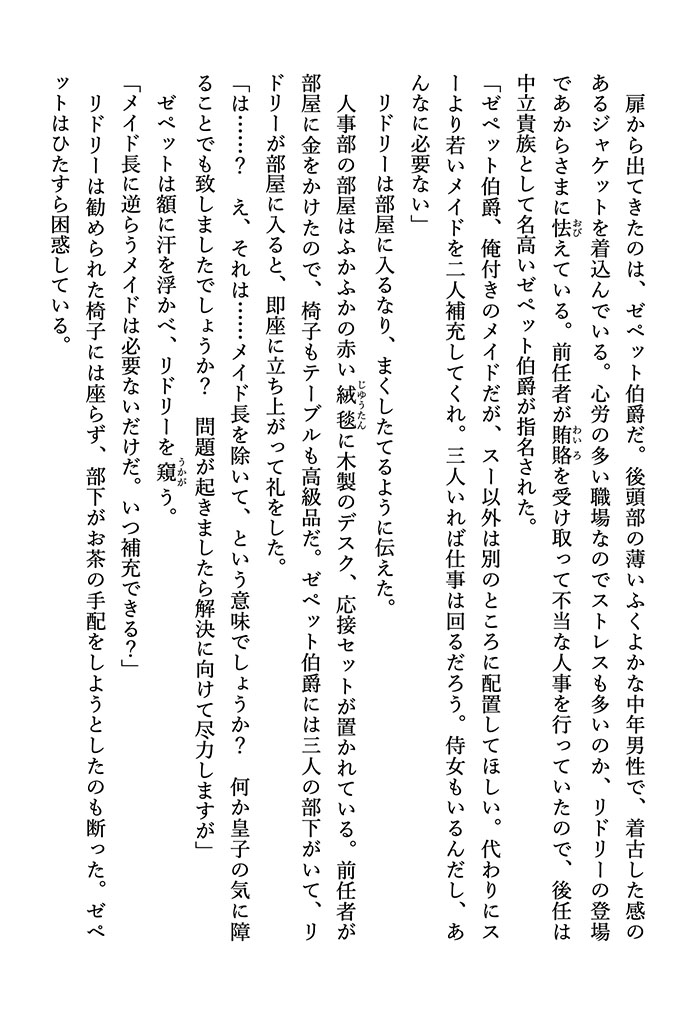 扉から出てきたのは、ゼペット伯爵だ。後頭部の薄いふくよかな中年男性で、着古した感の
あるジャケットを着込んでいる。心労の多い職場なのでストレスも多いのか、リドリーの登場
であからさまに怯えている。前任者が賄賂を受け取って不当な人事を行っていたので、後任は
中立貴族として名高いゼペット伯爵が指名された。
「ゼペット伯爵、俺付きのメイドだが、スー以外は別のところに配置してほしい。代わりにス
ーより若いメイドを二人補充してくれ。三人いれば仕事は回るだろう。侍女もいるんだし、あ
んなに必要ない」
　リドリーは部屋に入るなり、まくしたてるように伝えた。
　人事部の部屋はふかふかの赤い絨毯に木製のデスク、応接セットが置かれている。前任者が
部屋に金をかけたので、椅子もテーブルも高級品だ。ゼペット伯爵には三人の部下がいて、リ
ドリーが部屋に入ると、即座に立ち上がって礼をした。
「は……？　え、それは……メイド長を除いて、という意味でしょうか？　何か皇子の気に障
ることでも致しましたでしょうか？　問題が起きましたら解決に向けて尽力しますが」
　ゼペットは額に汗を浮かべ、リドリーを窺う。
「メイド長に逆らうメイドは必要ないだけだ。いつ補充できる？」
　リドリーは勧められた椅子には座らず、部下がお茶の手配をしようとしたのも断った。ゼペ
ットはひたすら困惑している。